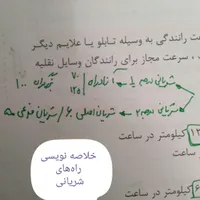 ت رانندگی به وسیله تابلو یا علایم دیگر
، سرعت مجاز برای رانندگان وسایل نقلیه
شریانی درجه ۱ آزادراه ۷۰ ۱۲۵ ۱۰۰
شریانی درجه ۲ شریان اصلی ۶۰ / شریان فرعی ۵۰
کیلومتر در ساعت
خلاصه نویسی
راه‌های
شریانی
کیلومتر در ساعت